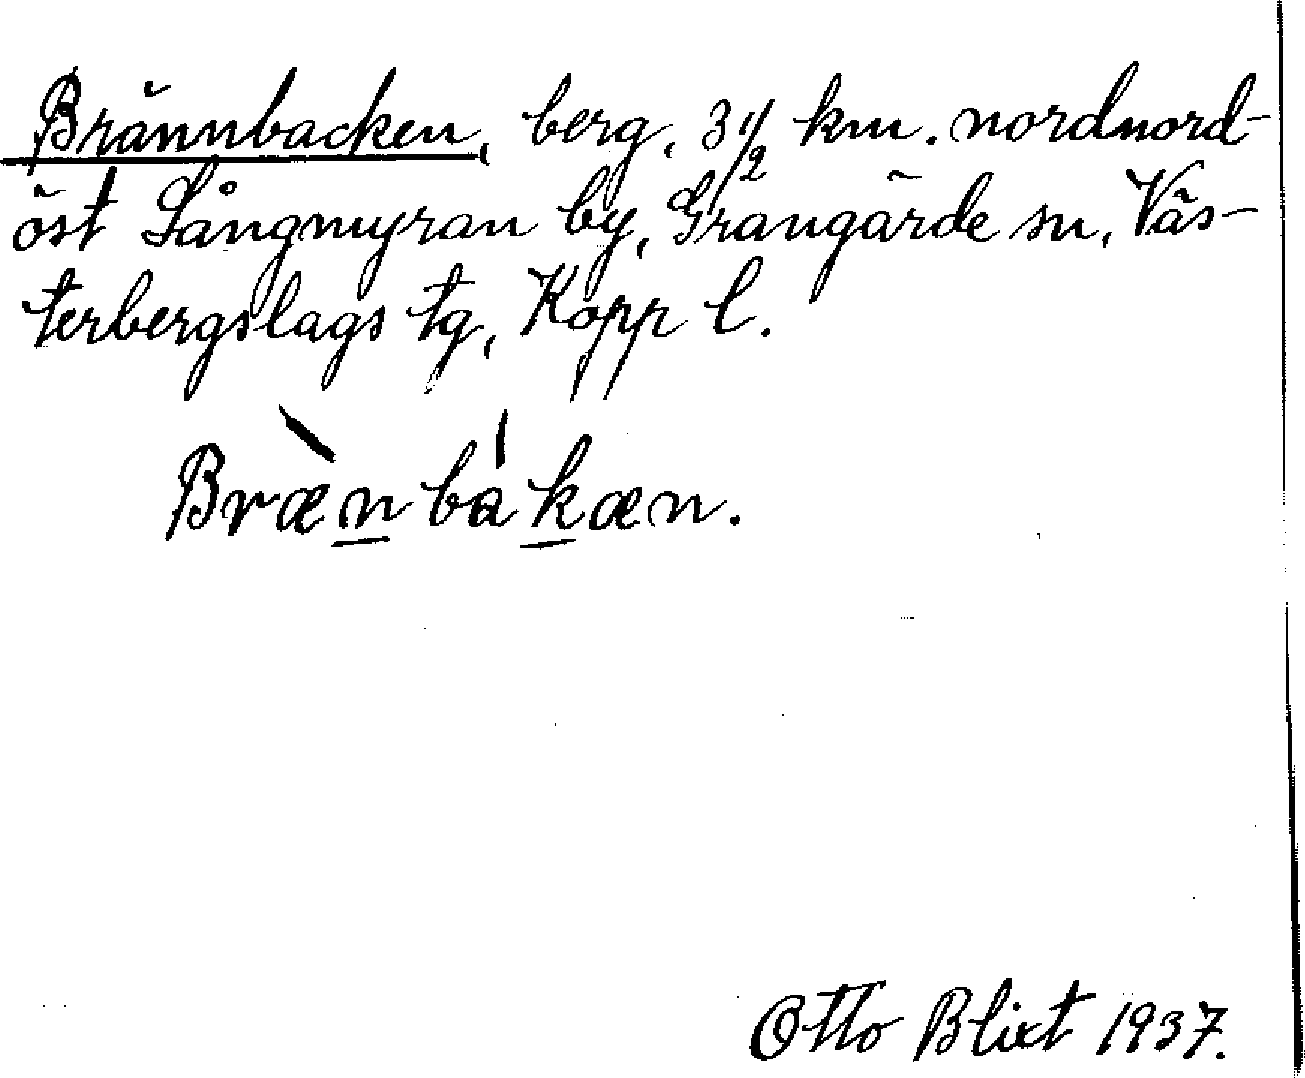 Brännbacken, berg, 3 1/2 km. nordnord-
öst Långmyran by, Grangärde sn, Väs-
terbergslags tg, Kopp l.
Brænbakæn.
Otto Blixt 1937.